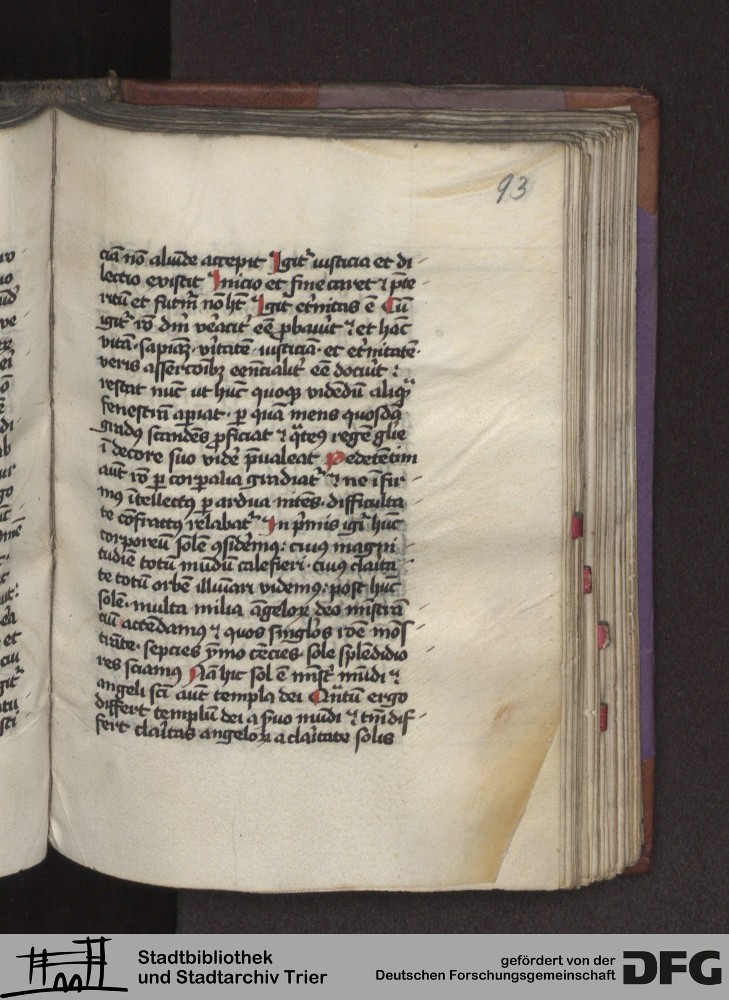 93
ciā nō aliūde accepit Igit᷑ iusticia et di
lectio existit Inicio et fine caret ⁊ p̄te
ritū et futur̄ nō hꝫ Igit᷑ et̄nitas ē Cū
igit᷑ rō dm̄ v̄eacit᷑ eē ꝓbau̓it ⁊ et hāc
vitā · sapiāꝫ · v̓itatē · iusticiā · et et̓nitatē ·
veris assercōibꝫ eēncialit᷑ eē docuit :
restat nūc ut huc quoqꝫ vidēdū aliqͣ
fenestrā apiat · p quā mens quosdā
gradꝯ scandēs ꝓficiat ⁊ regē gl̄ie
ī decore suo vide p̄ualeat Pedetētim
aūt rō p corpalia gradiat᷑ ⁊ ne īfir
mꝯ ītellectꝯ p ardua nitēs · difficulta
te cōfractꝯ relabat᷑ In p̓mis igi᷑ hūc
corporeū solē ꝯsidemꝯ : cuiꝯ magni
tudīe totū mūdū calefieri · cuiꝯ cla̓ita
te totū orbē illuīari videmꝯ : post hūc
solē · multa milia āgeloꝝ deo mīstrā
ciū attēdamꝯ ⁊ quos singlōs rōe mōs
trāte · sepcies ymo cēcies · sole splēdidio
res sciamꝯ Nā hic sol ē mīst᷑ mūdi ⁊
angeli sci aūt templa dei Qn̄tum ergo
differt templū dei a suo mūdi ⁊ tm̄ dif
fert cla̓itas angeloꝝ a cla̓itate solis
Stadtbibliothek
und Stadtarchiv Trier
gefördert von der
Deutschen Forschungsgemeinschaft
DFG